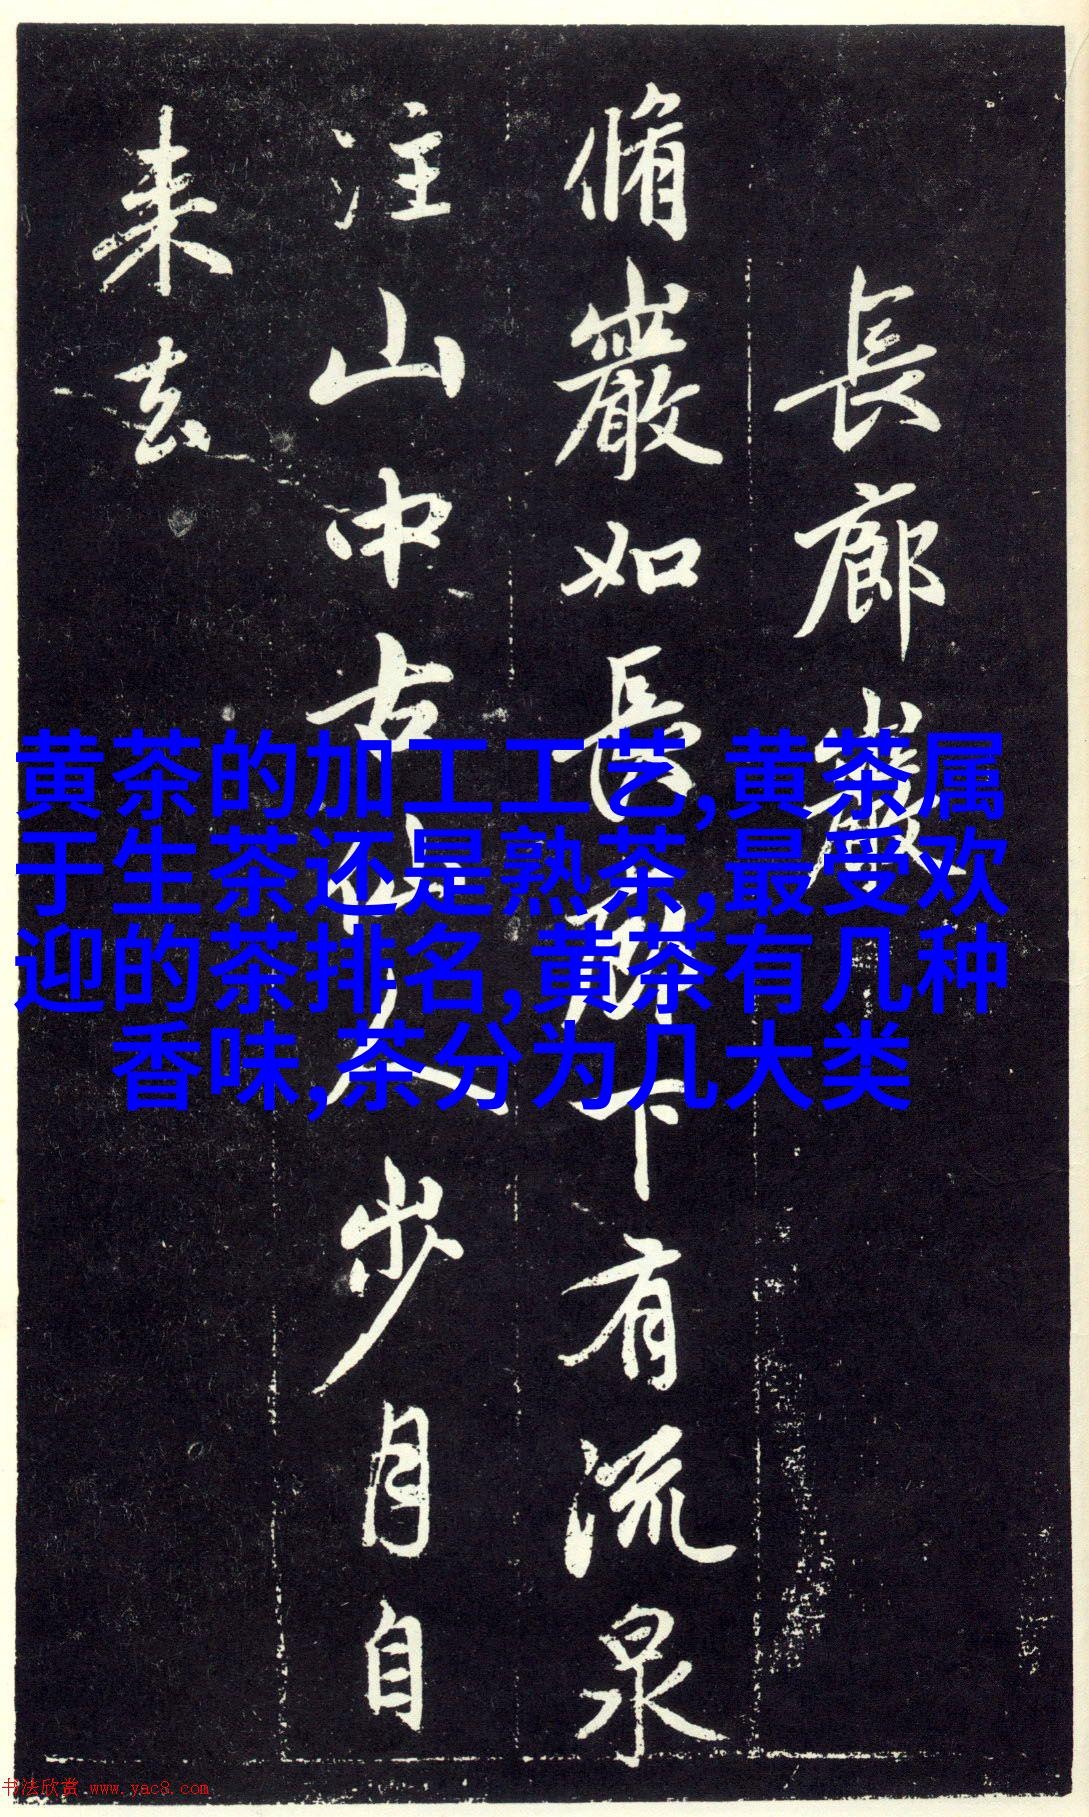 長廊巖
脩巖如長廊下有流泉
注山中古仙人步月自
来去
黄茶的加工工艺,黄茶属
于生茶还是熟茶,最受欢
迎的茶排名,黄茶有几种
香味,茶分为几大类
书法欣赏 www.yac8.com